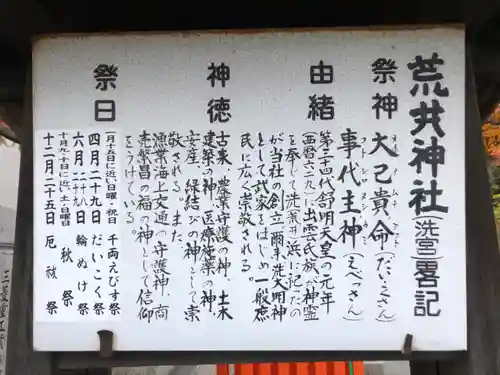 荒井神社(洗宮)畧記
祭神
大己貴命(だいこくさん)
オオナムチノミコト
事代主神(えべっさん)
コトシロヌシノカミ
由緒
第三十四代舒明天皇の元年
(西暦六二九)出雲氏族が神霊
を奉じて洗荒井浜に祀ったの
が当社の創立、爾来、洗大明神
として武家をはじめ一般庶
民に広く崇敬される。
神徳
古来、農業守護の神、土木
建築の神、医療施薬の神、
安産、縁結びの神として崇
敬される。また、
漁業海上交通の守護神、商
売繁昌の福の神として信仰
をうけている。
祭日
一月十五日に近い日曜・祝日 千両えびす祭
四月二十九日 だいこく祭
六月二十九日 輪ぬけ祭
十月九・十日に近い土・日曜日 秋祭
十二月二十五日 厄祓祭